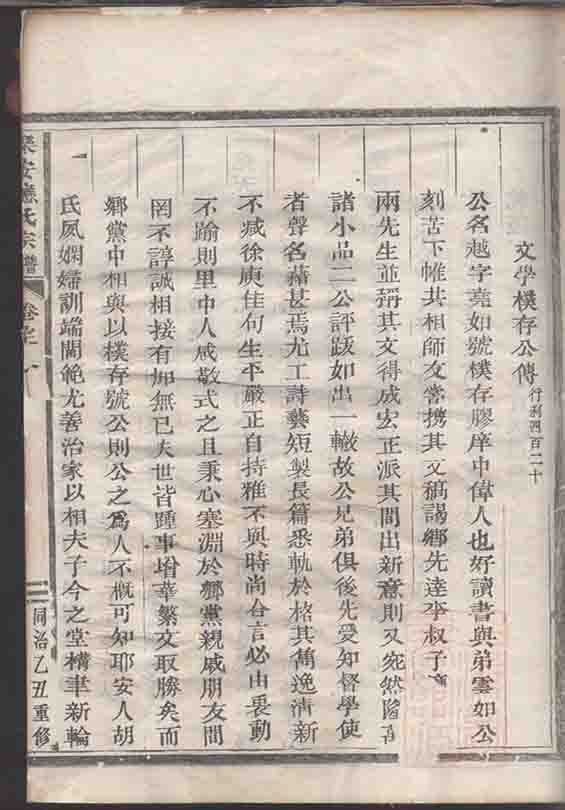 文學樸存公傳 行利四百二十
公名越字堯如號樸存膠庠中偉人也好讀書與弟雲如公
刻苦下帷共相師友嘗携其文稿謁鄉先達李叔子
兩先生並稱其文得成宏正派其間出新意則又宛然
諸小品二公評跋如出一轍故公兄弟俱後先受知督學使
者聲名藉甚焉尤工詩藝短製長篇悉軌於格其雋逸清新
不减徐庾佳句生平嚴正自持雅不與時尚合言必由衷動
不踰則里中人咸敬式之且秉心塞淵於鄉黨親戚朋友間
罔不諄誠相接有加無已夫世皆踵事增華繁文取勝矣而
鄉黨中相與以樸存號公則公之爲人不概可知耶安人胡
氏夙嫻婦訓端閫範尤善治家以相夫子今之堂構聿新輪
安應氏宗譜
卷之
同治乙丑重修